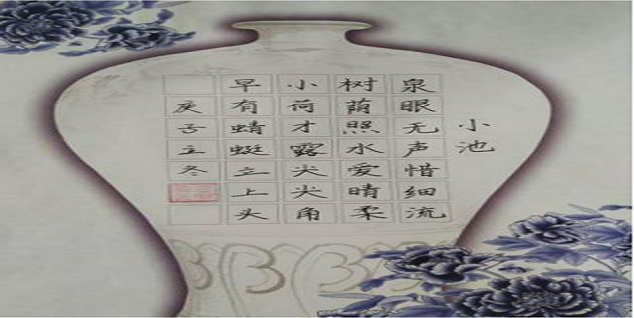 小池
泉眼无声惜细流
树荫照水爱晴柔
小荷才露尖尖角
早有蜻蜓立上头
庚子立冬